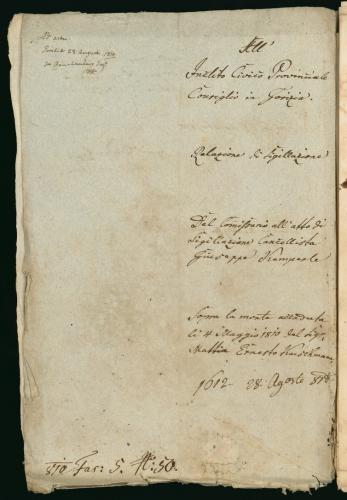 Ad acta
28 Augusti 1810
All'
Inclito Civico Provinciale
Consiglio in Gorizia.
Relazione di Sigillazione
Del Comissario all'atto di
Sigillazione Cancellista
Giuseppe Kamperle
Sopra la morte accaduta
li 4 Maggio 1810 del Sigr
Mattia Ernesto
1612 28 Agosto 810
810 Fas: 5. N: 50.